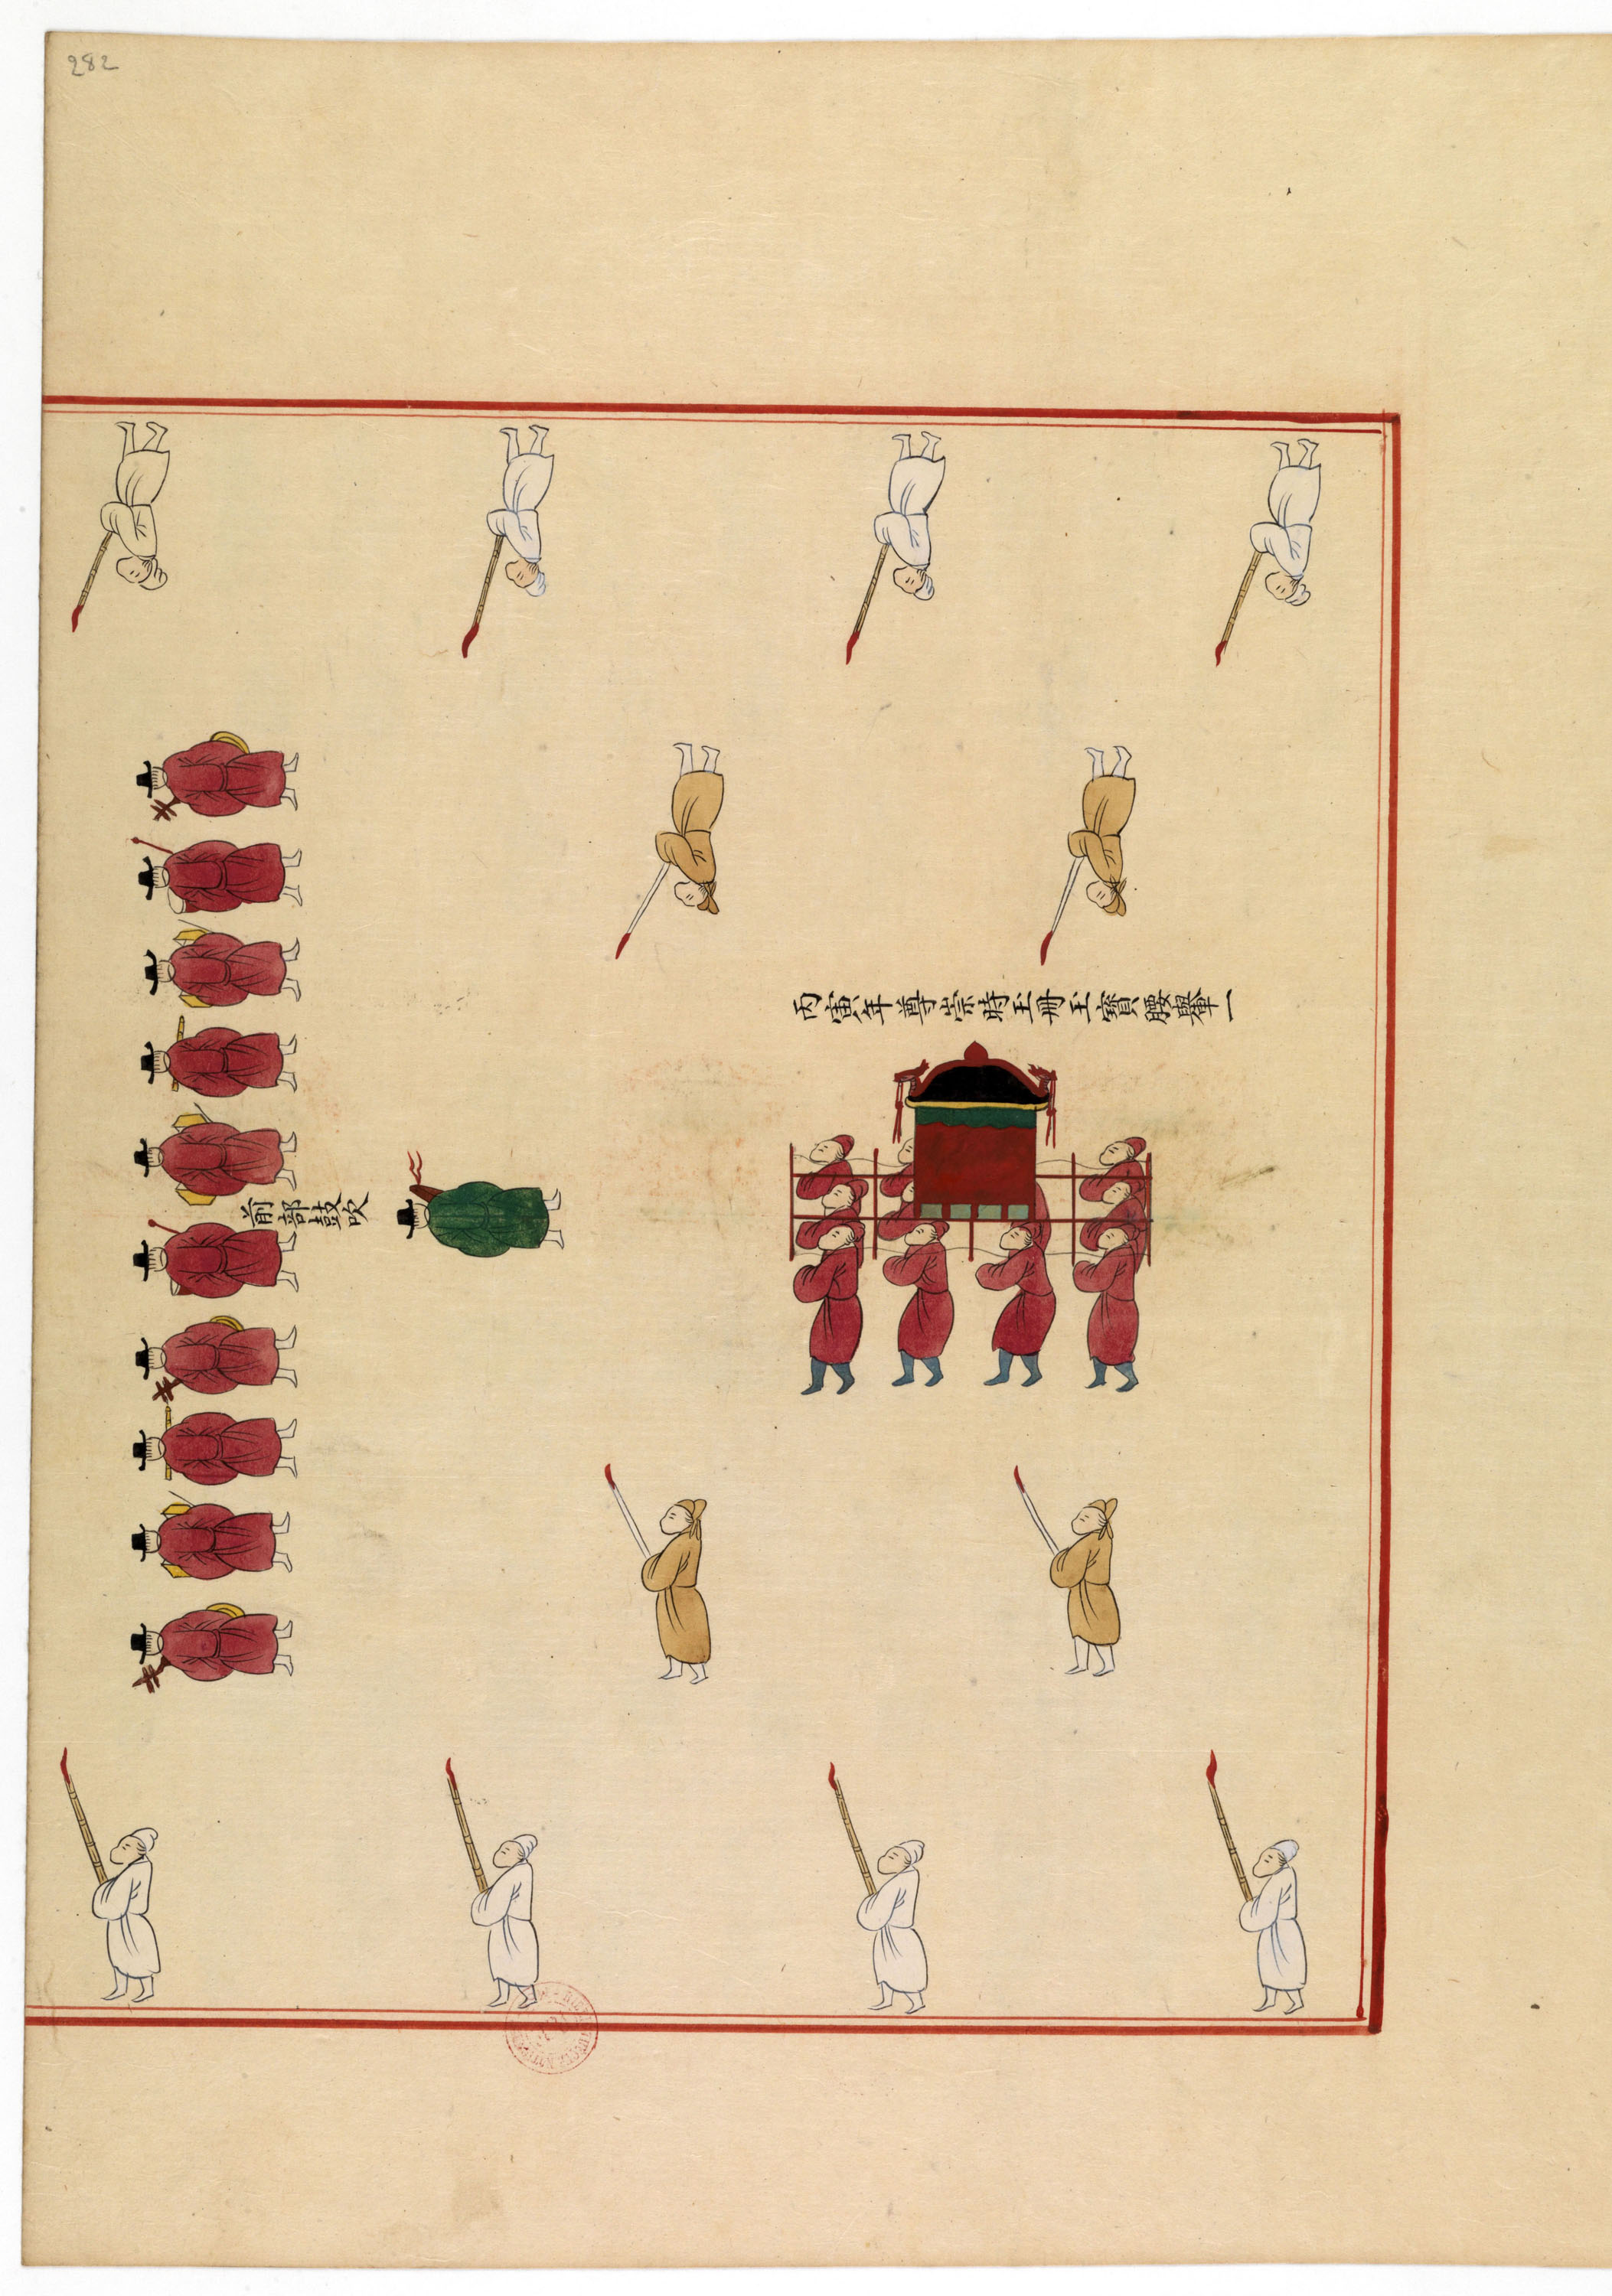 282
前部鼓吹
丙寅年尊崇時玉冊玉寶腰轝一